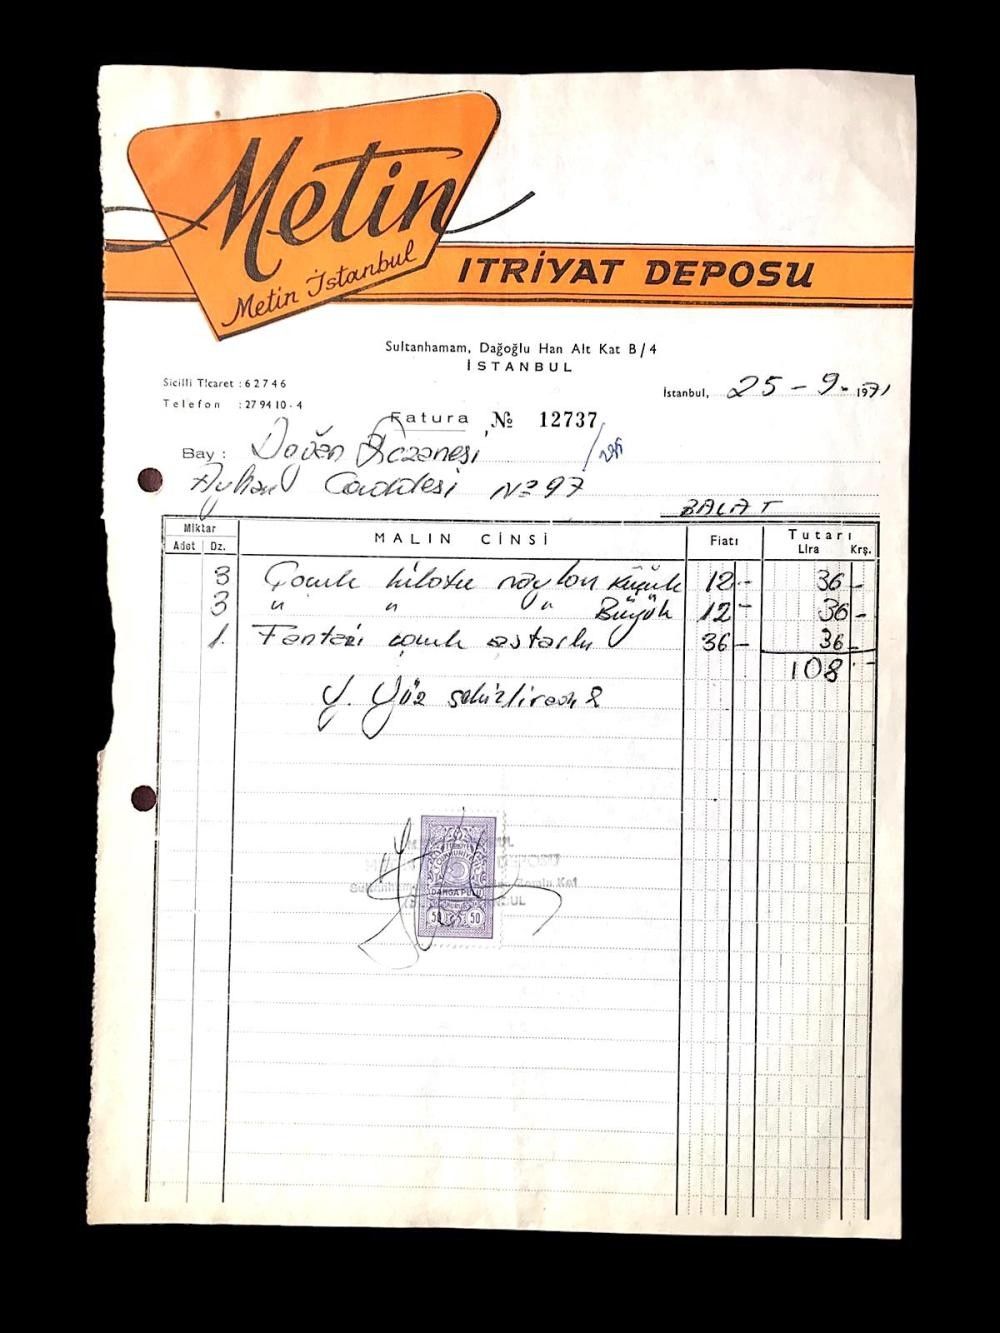 Metin
Metin İstanbul
ITRİYAT DEPOSU
Sultanhamam, Dağoğlu Han Alt Kat B/4
İSTANBUL
Sicilli Ticaret : 62746
Telefon : 279410-4
İstanbul, 25-9-1971
Fatura № 12737
Bay : Doğan Eczanesi
Ayhan Caddesi No 97
BALAT
Miktar
Adet Dz. MALIN CİNSİ Fiatı Tutarı
Lira Krş.
3 Çocuk külotu naylon küçük 12- 36-
3 " " " Büyük 12- 36-
1. Fantazi çocuk 36- 36-
108-
Y. Yüz sekizliradır
TÜRKİYE
CUMHURİYETİ
DAMGA PULU
50 50